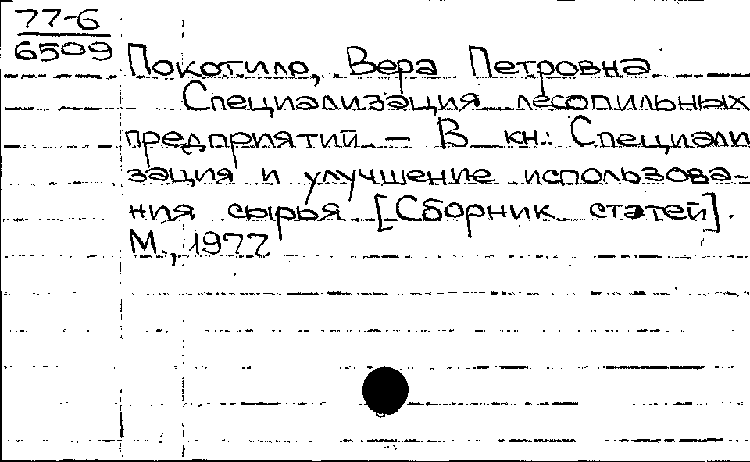 77-6
6509
Покотило, Вера Петровна
Специализация лесопильных
предприятий. — В кн.: Специали
зация и улучшение использова-
ния сырья [Сборник статей].
М., 1977